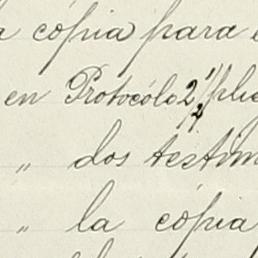 cópia para
en Protocólo 2 1/4 plie
" dos testim
" la cópia